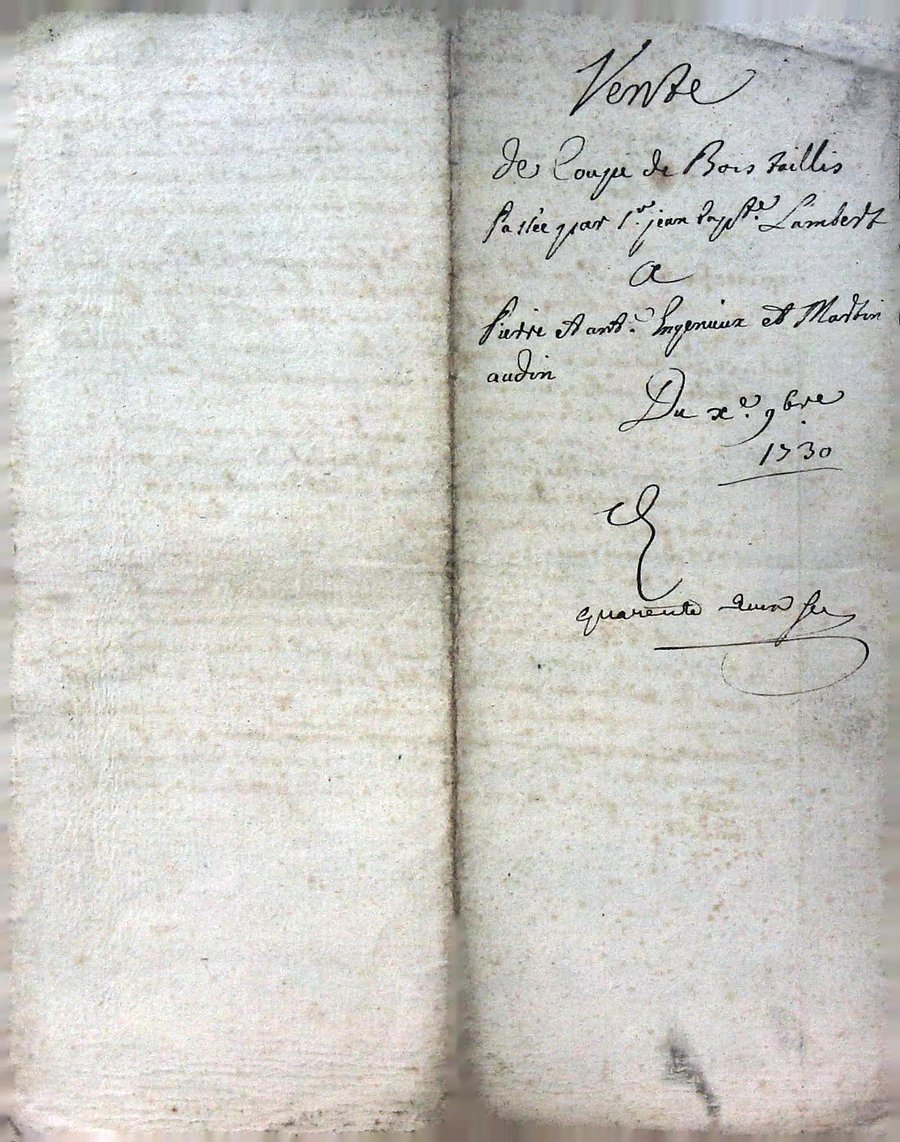 Vente
de Coupe de Bois taillis
passée par Sr. jean bapte. Lambert
A
Pierre et ant.e Ingenieux et Martin
audin
Du xe. 9bre
1730
quarente